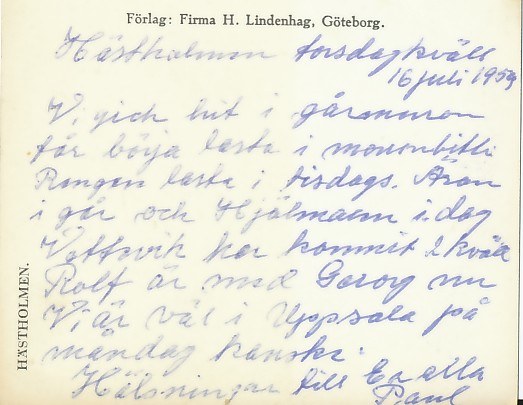 Förlag: Firma H. Lindenhag, Göteborg.
Hästholmen torsdagkväll
16 juli 1959
Vi gick hit i går morron
får börja lasta i morronbitti
Ringen lasta i tisdags. Äran
i går och Hjälmaren i dag
Vettsvik har kommit i kväll
Rolf är med Georg nu
Vi är väl i Uppsala på
måndag kanske.
Hälsningar till Er alla
Paul
HÄSTHOLMEN.